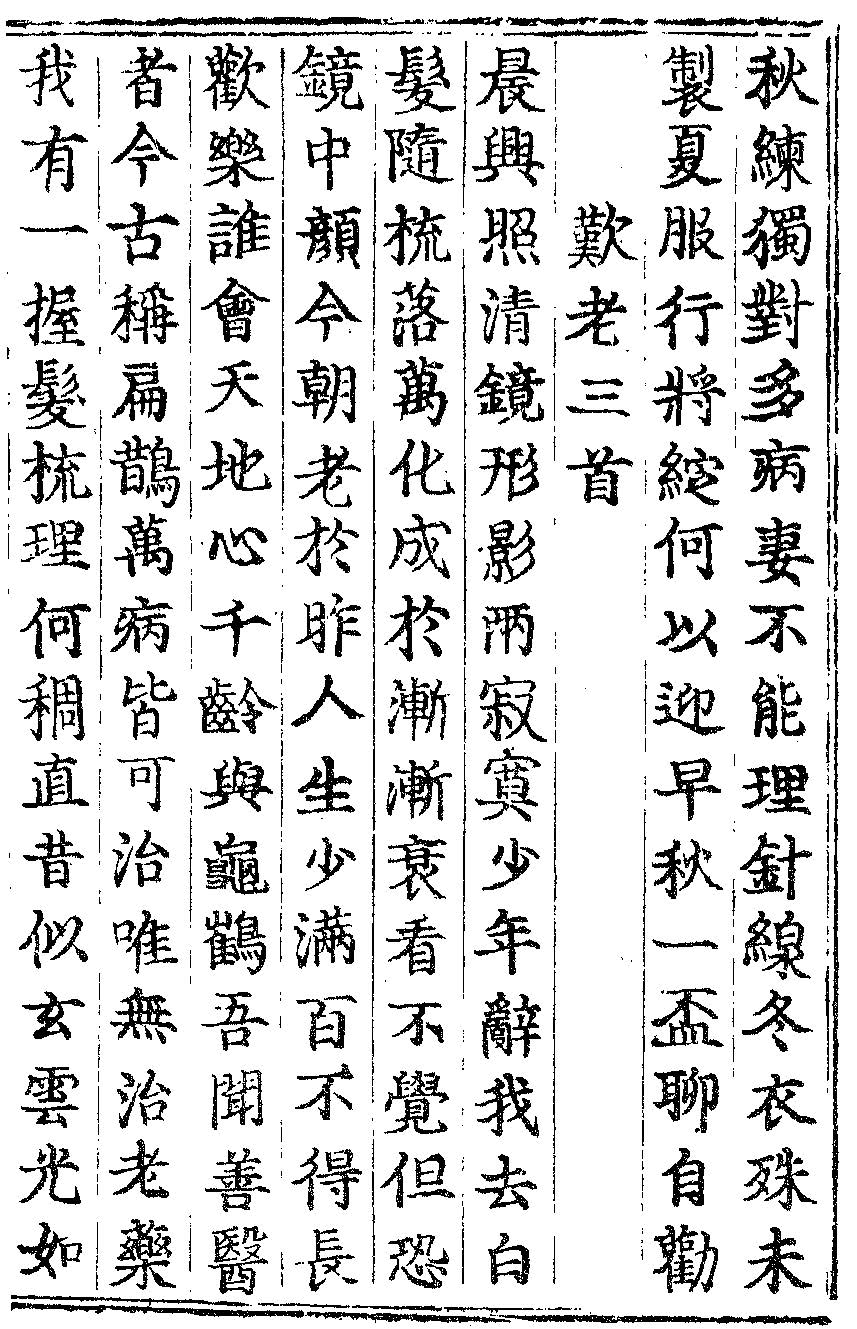 秋練獨對多病妻不能理針線冬衣殊未
製夏服行將綻何以迎早秋一盃聊自勸
歎老三首
晨興照清鏡形影兩寂寞少年辭我去白
髮隨梳落萬化成於漸漸衰看不覺但恐
鏡中顏今朝老於昨人生少滿百不得長
歡樂誰會天地心千齡與龜鶴吾聞善醫
者今古稱扁鵲萬病皆可治唯無治老藥
我有一握髮梳理何稠直昔似玄雲光如